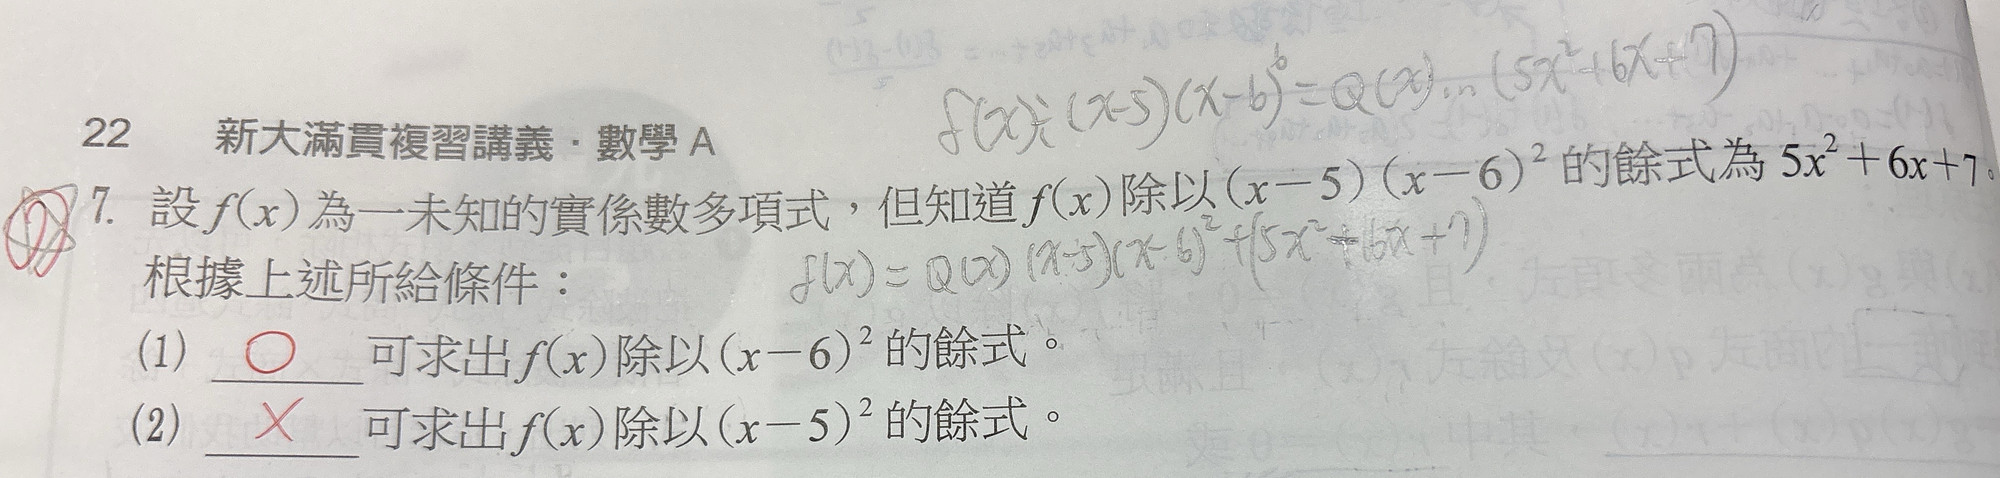 f(x)÷(x-5)(x-6)²=Q(x)...(5x²+6x+7)
22 新大滿貫複習講義．數學 A
7. 設 f(x) 為一未知的實係數多項式，但知道 f(x) 除以 (x－5) (x－6)² 的餘式為 5x²＋6x＋7。
f(x) = Q(x) (x-5)(x-6)²+(5x²+6x+7)
根據上述所給條件：
(1) ○ 可求出 f(x) 除以 (x－6)² 的餘式。
(2) × 可求出 f(x) 除以 (x－5)² 的餘式。